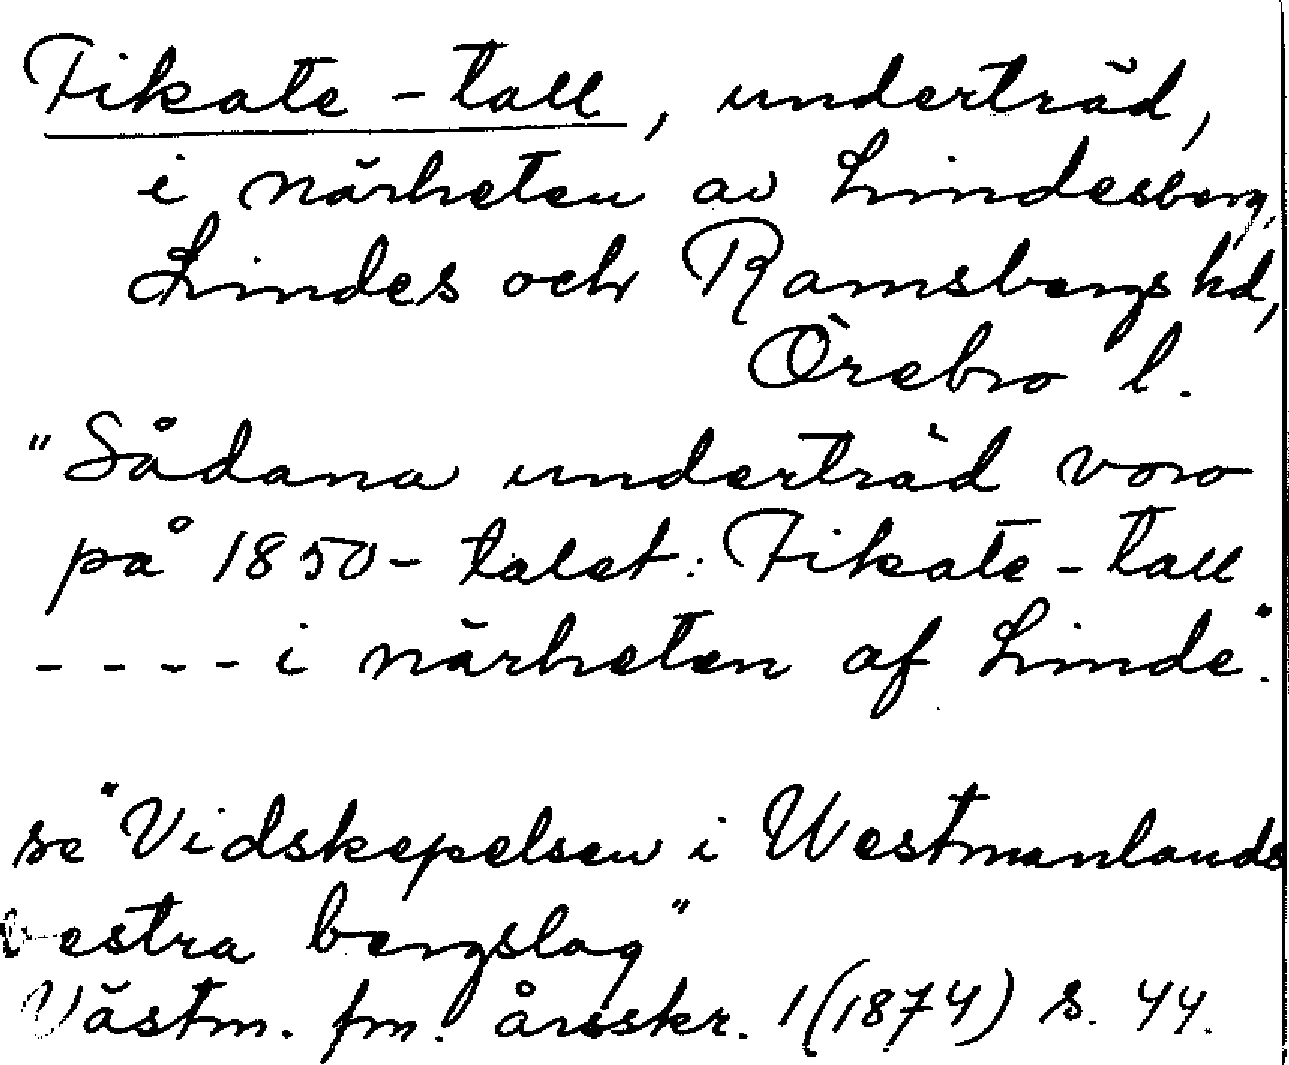 Fikate-tall, underträd,
i närheten av Lindesberg,
Lindes och Ramsbergs hd,
Örebro l.
"Sådana underträd voro
på 1850-talet: Fikate-tall
----i närheten af Linde".
se "Vidskepelsen i Westmanlands
vestra bergslag"
Västm. fm. årsskr. 1(1874) s. 44.